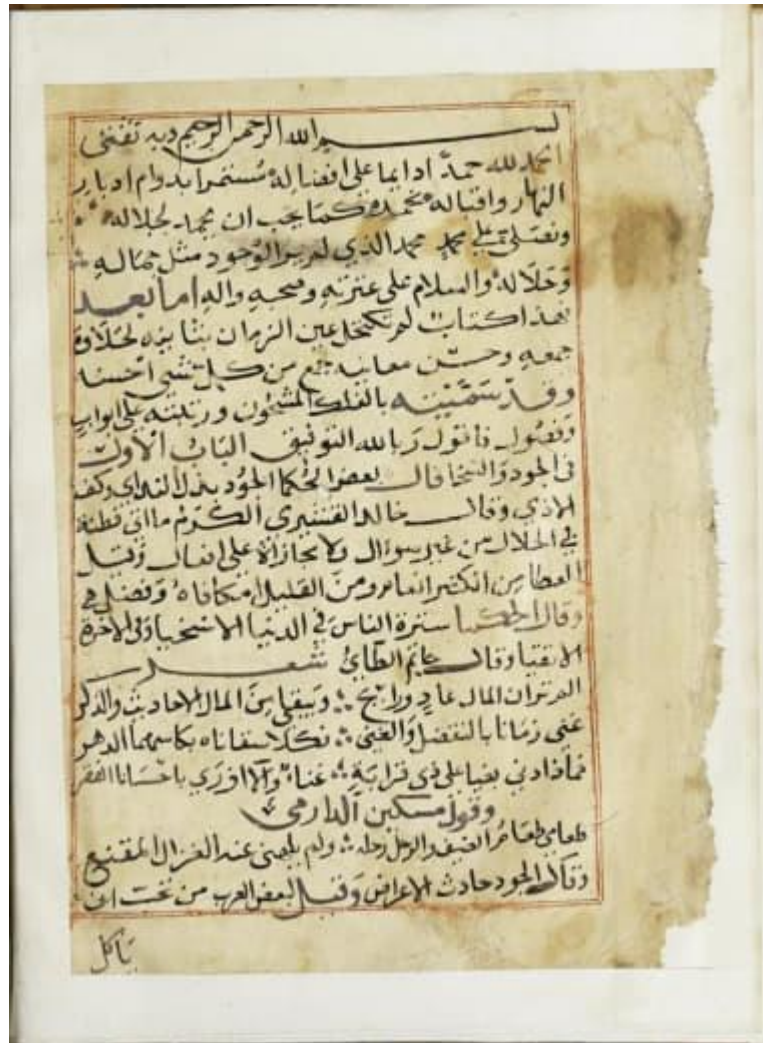 بسم الله الرحمن الرحيم وبه ثقتي
الحمد لله حمدا دايما على افضاله مستمرا بدوام ادبار
النهار واقباله نحمده كما يجب ان يحمد لجلاله
ونصلي على محمد الذي لم ير الوجود مثل جماله
وجلاله والسلام على عترته وصحبه واله اما بعد
فهذا كتاب لم تكتحل عين الزمان بثانيه لحلاوة
جمعه وحسن معانيه جمع من كل شي احسنه
وقد سميته بالفلك المشحون ورتبته على ابواب
وفصول فاقول وبالله التوفيق الباب الاول
في الجود والسخا قال بعض الحكما الجود بذل الندا وكف
الاذي وقال خالد القشيري الكرم ما اتى
في الحلال من غير سوال ولا مجازاة على افعال وقيل
العطا من الكثير انعام ومن القليل مكافاه وفضل
وقال الحكما سترة الناس في الدنيا الاسخيا وفي الاخرة
الاتقيا وقال حاتم الطائ شعر
الم تر ان المال غاد ورايح ؞ ويبقى من المال الاحاديث والذكر
غنى زمانا بالتفضل والغنى ؞ فكلا سقاناه بكاسهما الدهر
فما زادني بغيا على ذي قرابة ؞ غناء والا ازري باحساننا الفقر
وقول مسكين الدارمي
طعامي طعام الضيف والرحل رحله ؞ ولم يلهني عنه الغزال المقنع
وقال الجود حارث الاعراض وقيل لبعض العرب من تحب ان
ياكل